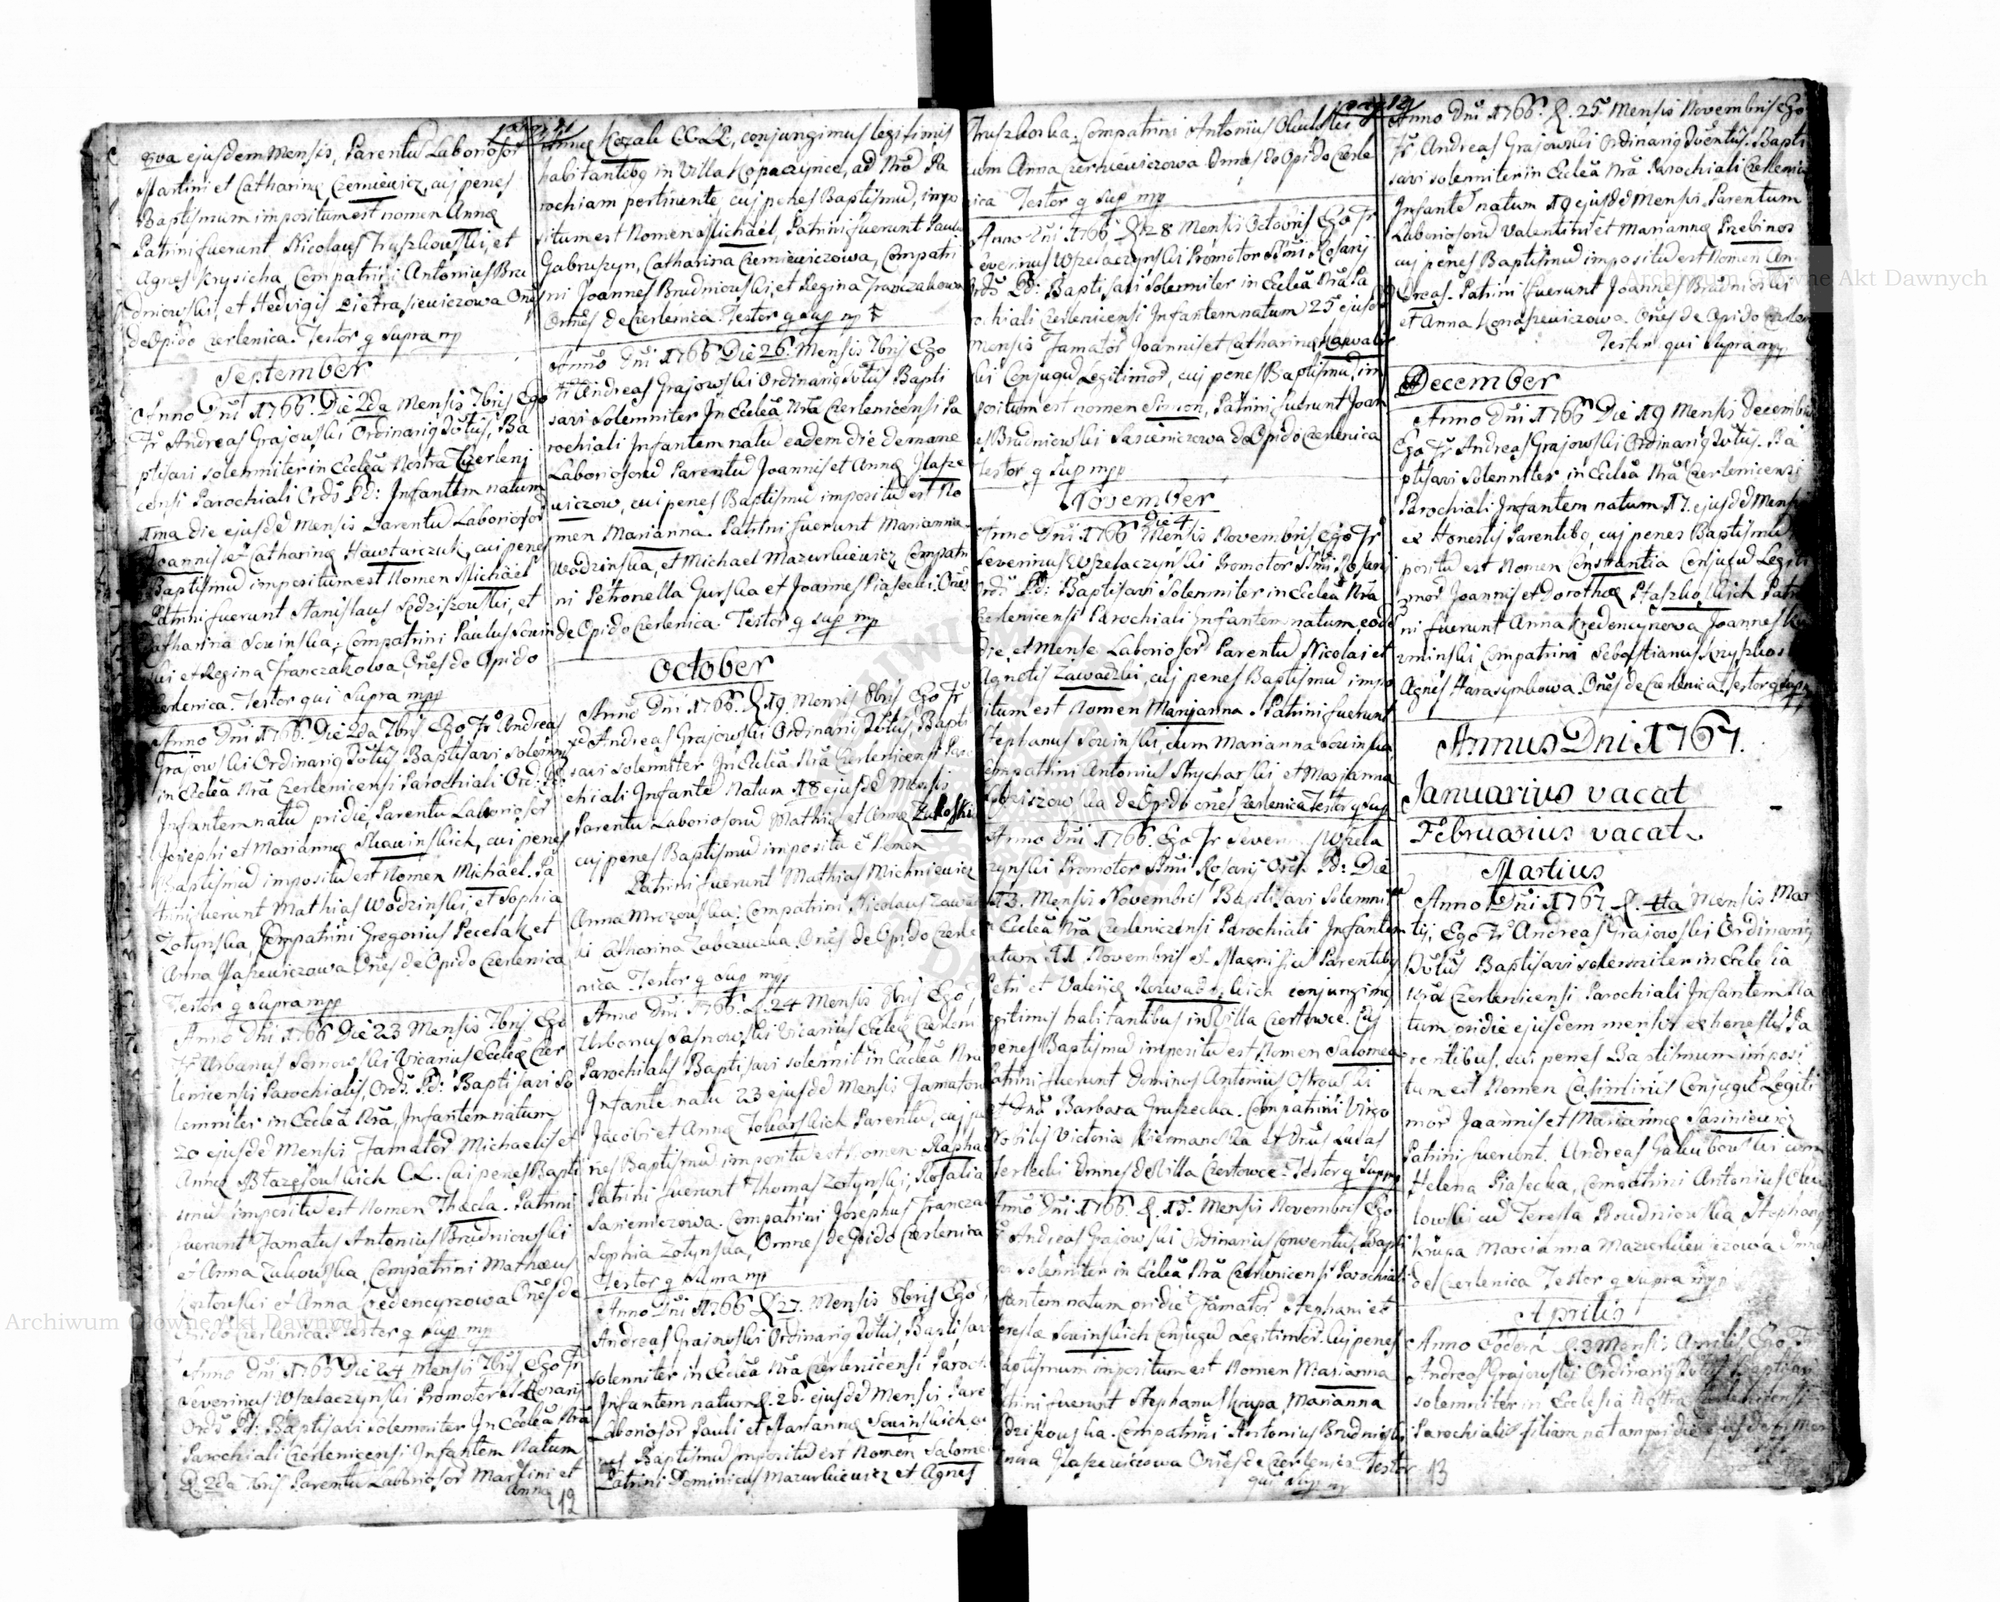 qva ejusdem Mensis, Parentu Laboriosor
Martini et Catharinę Czerniewicz, cuj penes
Baptismum impositum est nomen Anna
Patrini fuerunt, Nicolaus Truszkowski, et
Agnes Krysicha, Compatrini Antonius Bru
dniowski, et Hedvigis Pietrasiewiczowa Onēs
de Opido Czerlenica. Testor q supra mp
September
Anno Dni 1766. Die 2da Mensis 7bris Ego
Fr Andreas Grajowski Ordinarig Dvtus, Ba
ptisavi solemniter in Ecclēa Nostra Czerleni
censi Parochiali Ords Pd: Infantem natum
1ma die ejusdē Mensis Parentu Laboriosor
Joannis et Catharinę Hawtarczuk, cui penes
Baptismu impositum est Nomen Michael
Patrini fuerunt Stanislaus Lodziszowski, et
Catharina Sowinska; Compatrini Paulus Sowin
ski et Regina Franczakowa, Onēs de Opido
Czerlenica. Testor qui Supra mpp
Anno Dni 1766. Die 2da 7bris Ego Fr Andreas
Grajowski Ordinarig Dvtus Baptisavi solemni
in Ecclēa Nrā Czerlenicensi Parochiali Ord: Pd
Infantem natu pridie, Parentu Laboriosor
Josephi et Mariannę Skawinskich, cui penes
Baptismu impositu est Nomen Michael. Pa
trini fuerunt Mathias Wodzinski, et Sophia
Zołynska, Compatrini Gregorius Pecelak et
Anna Jłaszewiczowa Onēs de Opido Czerlenica
Testor q supra mpp
Anno Dni 1766 Die 23 Mensis 7bris Ego
Fr Urbanus Sosnowski Vicarius Ecclēę Czer
lenicensi Parochialis, Ords Pd: Baptisavi So
lemniter in Ecclēa Nrā, Infantem natum
20 ejusdē Mensis Famator Michaelis et
Annę Błazesowskich C.L. cui penes Bapti
smu impositu est Nomen Thecla. Patrini
fuerunt Famatus Antonius Brudniowski
et Anna Zukowska, Compatrini Mathæus
et Anna Credencyrzowa Onēs de
Opido Czerlenica Testor q sup mp
Anno Dni 1766 Die 24 Mensis 7bris, Ego Fr
Severinus Wszelaczynski Promotor S Rosarii
Ords Pd: Baptisavi Solemniter In Ecclēa Nra
Parochiali Czerlenicensi Infantem Natum
D. 22da 7bris Parentu Laboriosor Martini et
Annę
12
Annę Kozali CC.LL, conjungimus legitimis
habitantibg in Villa Kopaczynce, ad Nrā Pa
rochiam pertinente, cuj penes Baptismu, impo
situm est Nomen Michael, Patrini fuerunt Paulus
Gabruszyn, Catharina Czerniewiczowa, Compatri
ni Joannes Brudniowski, et Regina Franczakowa
Omnēs de Czerlenica. Testor q sup mp
Anno Dni 1766 Die 26. Mensis 7bris Ego
Fr Andreas Grajowski Ordinarig Dvtus Bapti
savi Solemniter In Ecclēa Nrā Czerlenicensi Pa
rochiali Infantem natu eadem die de mane
Laboriosoru Parentu Joannis et Annę Jłasze
wiczow, cui penes Baptismu impositu est No
men Marianna. Patrini fuerunt Marianna
Wodzinska, et Michael Mazurkiewicz, Compatri
ni Petronella Gurska et Joannes Piasecki. Onēs
de Opido Czerlenica. Testor q sup mp
October
Anno Dni 1766. D. 19. Mensis 8bris Ego Fr
Andreas Grajowski Ordinarig Dvtus, Bapti
savi solemniter In Ecclēa Nrā Czerlenicensi Paro
chiali Infantē Natum 18 ejusdē Mensis
Parentu Laboriosoru Mathię et Annę Zukoski
cuj penes Baptismu impositū ē Nomen
Patrini fuerunt Mathias Michniewicz
Anna Mrozowska; Compatrini Nicolaus Zawadz
ki Catharina Zabczuczka. Onēs de Opido Czerle
nica. Testor q sup mpp
Anno Dni 1766. D. 24 Mensis 8bris Ego Fr
Urbanus Sosnowski Vicarius Ecclēę Czerleni
Parochialis Baptisavi solemnit in Ecclēa Nrā
Infante natu 23 ejusdē Mensis Famatoru
Jacobi et Annę Tokarskich Parentu, cuj pe
nes Baptismu impositu est Nomen Raphael
Patrini fuerunt Thomas Zołynski, Rosalia
Sasieniczowa. Compatrini Josephus Francza
Sophia Zołynska, Omnes de Opido Czerlenica
Testor q supra mp
Anno Dni 1766 D 27. Mensis 8bris Ego
Andreas Grajowski Ordinarig Dvtus, Baptisavi
solemniter in Ecclēa Nrā Czerlenicensi Paroch
Infantem natum D. 26 ejusdē Mensis Pare
Laboriosor Pauli et Mariannę Sowinskich, cu
nes Baptismu impositu est Nomen Salome
Patrini Dominicus Mazurkiewicz et Agnes
Truszkoska. Compatrini Antonius
cum Anna Czerniewiczowa Omēs de Opido Czerle
nica Testor q sup mp
Anno Dni 1766 D 28 Mensis Octobris Ego Fr
Severinus Wszelaczynski Promotor Ssmi Rosarij
Ords Pd: Baptisavi Solemniter in Ecclēa Nra Pa
rochiali Czerlenicensi Infantem natum 25 ejusdē
mensis Famator Joannis et Catharinę Kowal
ski Conjugu Legitimor, cuj penes Baptismu im
positum est nomen Simon, Patrini fuerunt Joan
es Brudniowski Sasieniczowa de Opido Czerlenica
Testor q sup mpp
November
Anno Dni 1766 Die 4 Mensis Novembris Ego Fr
Severinus Wszelaczynski Promotor Ssmi Rosarij
Ords Pd: Baptisavi Solemniter in Ecclēa Nrā
Czerlenicensi Parochiali Infantem natum, eodē
Die, et Mense Laboriosor Parentu Nicolai et
Agnetis Zawadzki, cuj penes Baptismu impo
situm est Nomen Marjanna. Patrini fuerunt
Stephanus Sowinski, cum Marianna Sowinska
Compatrini Antonius Strycharski et Marjanna
Lodziszowska de Opido onēs Czerlenica Testor q Sup
Anno Dni 1766. Ego Fr Severinus Wszela
czynski Promotor Ssmi Rosarij Ords Pd: Die
13. Mensis Novembris Baptisavi Solemni
n Ecclēa Nrā Czerlenicensi Parochiali Infantem
natum 11 Novembris ex Magnificis Parentibg
Petri et Valerię Rozwadoskich conjungimg
legitimis habitantibus in Villa Czortowce. Cuj
penes Baptismu impositu est Nomen Salomea
Patrini fuerunt Dominus Antonius Ostrowski
et Dnā Barbara Gruszecka. Compatrini Virgo
Nobilis Victoria Biermanoska et Dnus Lucas
Terlecki omnes de Villa Czortowce. Testor q sup mp
Anno Dni 1766. D. 15. Mensis Novembris Ego
Fr Andreas Grajowski Ordinarius Conventus Bapti
vi solemniter in Ecclēa Nrā Czerlenicensi Parochiali
fantem natum pridie Famator Stephani et
Teresię Sowinskich Conjugu Legitimor. Cuj penes
Baptismum impositum est Nomen Marianna
trini fuerunt Stephanus Krupa, Marianna
Compatrini Antonius Brudniowski
Anna Jłaszewiczowa Onēs de Czerlenica. Testor
qui sup mp
Anno Dni 1766. D. 25 Mensis Novembris Ego
Fr Andreas Grajowski Ordinarig Dventus. Bapti
savi solemniter in Ecclēa Nrā Parochiali Czerlenic
Infantē natum 19 ejusdē Mensis Parentum
Laboriosoru Valentini et Mariannę Przebinos
cuj penes Baptismu impositu est Nomen An
dreas. Patrini fuerunt Joannes Brudnioski
et Anna Konaszewiczowa. Onēs de Opido Czerlen
Testor qui supra mpp
December
Anno Dni 1766 Die 19 Mensis Decembris
Ego Fr Andreas Grajowski Ordinarig Dvtus. Ba
ptisavi Solemniter in Ecclēa Nrā Czerlenicensi
Parochiali Infantem natum 17. ejusdē Mensis
ex Honestis Parentibg, cuj penes Baptismu
positu est Nomen Constantia Conjugu Legiti
mor Joannis et Dorothę Ptaszkoskich Patri
ni fuerunt Anna Kredencyrzowa Joannes
zminski, Compatrini Sebastianus Kryszkos
Agnes Harasymkowa. Onēs de Czerlenica. Testor q sup
Annus Dni 1767.
Januarius vacat
Februarius vacat.
Martius
Anno Dni 1767. D. Mensis Mar
tij, Ego Fr Andreas Grajowski Ordinarig
Dvtus Baptisavi solemniter in Ecclesia
Nrā Czerlenicensi Parochiali Infantem Na
tum pridie ejusdem mensis ex honestis Pa
rentibus, cui penes Baptismum imposi
tum est Nomen Casimirus Conjugu Legiti
mor Joannis et Mariannę Sasiniewicz
Patrini fuerunt. Andreas Gołuchowski cum
Helena Piasecka, Compatrini Antonius
lowski cu Teresia Brudniowska Stephang
Krupa Marcianna Mazurkiewiczowa Omnes
de Czerlenica Testor q supra mpp
Aprilis
Anno eodem D. 3 Mensis Aprilis, Ego Fr
Andreas Grajowski Ordinarig Dvtus Baptisavi
solemniter in Ecclesia Nostra Czerlenicensi
Parochiali filiam natam pridie ejusdem Men
13